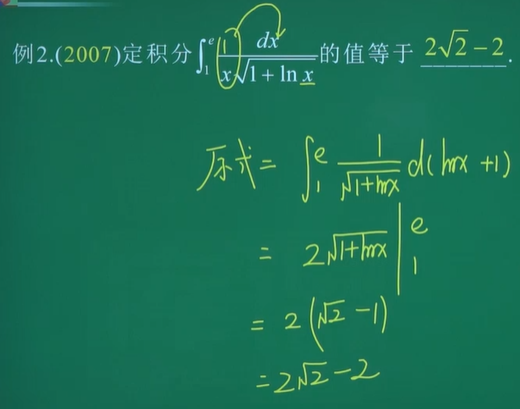 例2.(2007)定积分∫₁ᵉ dx/(x√(1+ln x))的值等于 2√2-2.
原式= ∫₁ᵉ 1/√(1+lnx) d(lnx +1)
= 2√(1+lnx) |₁ᵉ
= 2(√2 -1)
=2√2-2